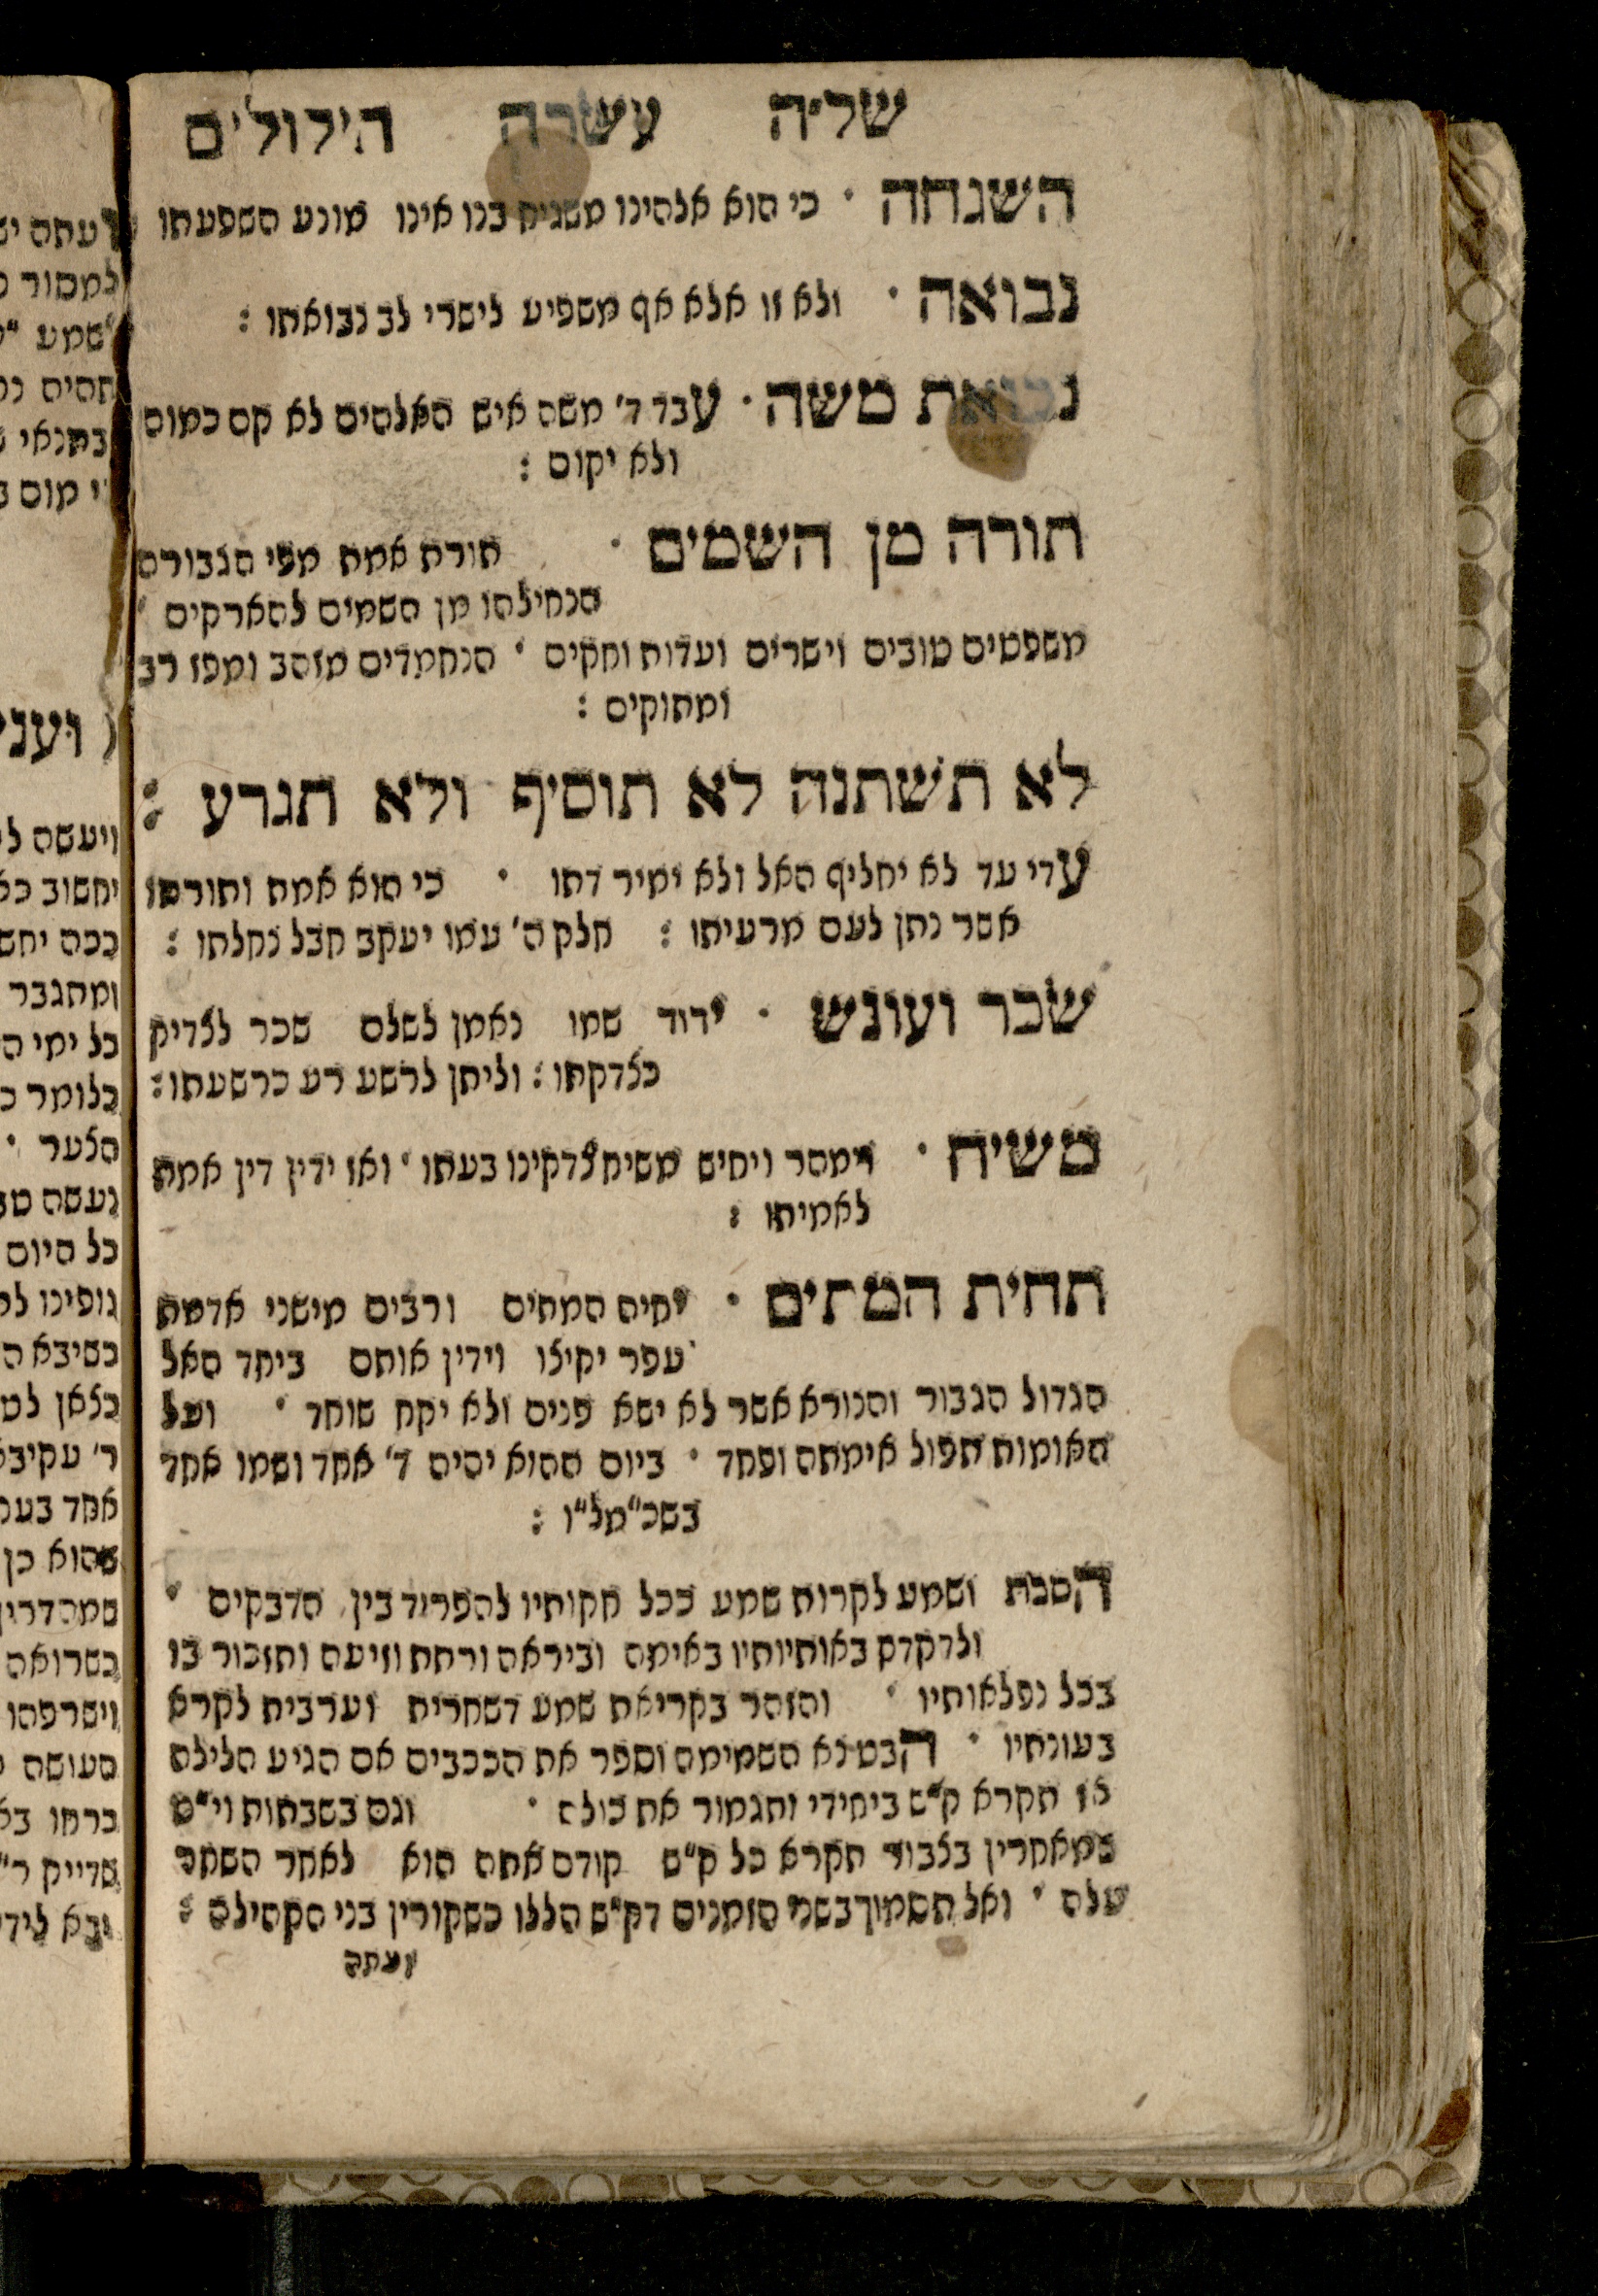 של״ה עשרה הילולים
השגחה · כי הוא אלהינו משגיח בנו אינו מונע השפעתו
נבואה · ולא זו אלא אף משפיע לישרי לב נבואתו :
נבואת משה · עבד ד׳ משה איש האלהים לא קם כמוהו
ולא יקום :
תורה מן השמים · תורת אמת מפי הגבורה
הנחילתו מן השמים להארקים ·
משפטים טובים וישרים ועדות וחקים · הנחמדים מזהב ומפז רב
ומתוקים :
לא תשתנה לא תוסיף ולא תגרע :
עדי עד לא יחליף האל ולא ימיר דתו · כי הוא אמת ותורתו
אשר נתן לעם מרעיתו : חלק ה׳ עמו יעקב חבל נחלתו :
שכר ועונש · ידוד שמו נאמן לשלם שכר לצדיק
כצדקתו : וליתן לרשע רע כרשעתו :
משיח · ימהר ויחיש משיח צדקינו בעתו · ואז ידין דין אמת
לאמיתו :
תחית המתים · יחיה המתים ורבים מישני אדמת
עפר יקיצו וידין אותם ביחד האל
הגדול הגבור והנורא אשר לא ישא פנים ולא יקח שוחד · ועל
האומות תפול אימתה ופחד · ביום ההוא יהיה ד׳ אחד ושמו אחד
בשכ״מל״ו :
הסכת ושמע לקרות שמע בכל חקותיו להפריד בין הדבקים ·
ולדקדק באותיותיו באימה וביראה ורתת וזיעה ותזכור בו
בכל נפלאותיו · והזהר בקריאת שמע דשחרית וערבית לקרא
בעונתיו · הבט נא השמימה וספר את הככבים אם הגיע הלילה
אז תקרא ק״ש ביחידי ותגמור את כולה · וגם בשבתות וי״ט
שמאחרין בצבור תקרא כל ק״ש קודם אתה הוא לאחר השחר
עלה · ואל תסמוך בשני הזמנים דק״ש הללו כשקורין בני הקהילה :
ועתה